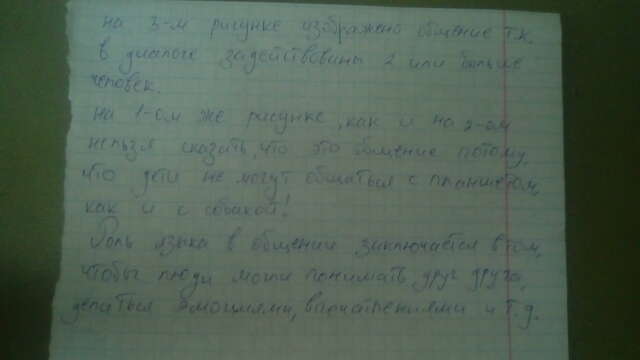 на 3-м рисунке изображено общение т.к.
в диалоге задействованы 2 или больше
человек.
на 1-ом же рисунке, как и на 2-ом
нельзя сказать, что это общение потому,
что дети не могут общаться с планшетом,
как и с собакой!
Роль языка в общении заключается в том,
чтобы люди могли понимать друг друга,
делаться эмоциями, впечатлениями и т.д.